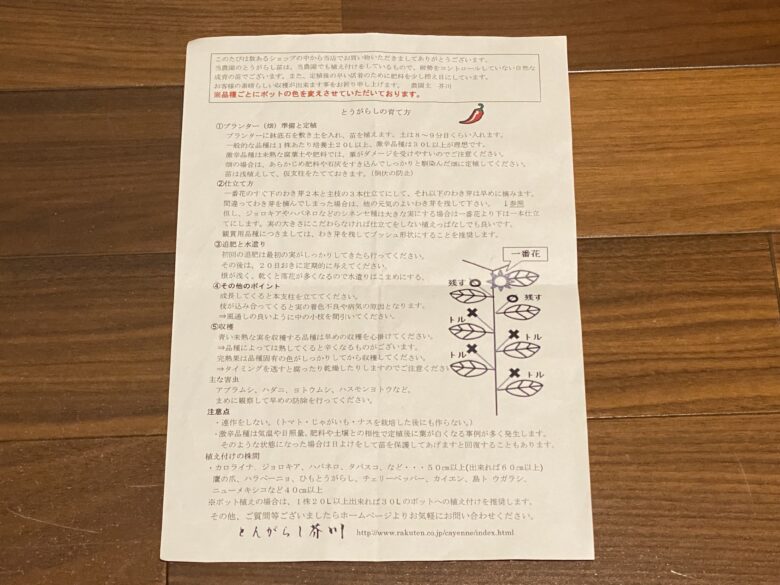 このたびは数あるショップの中から当店でお買い物いただきましてありがとうございます。
当農園のとうがらし苗は、当農園でも植え付けをしているもので、樹勢をコントロールしていない自然な
成育の苗でございます。また、定植後の早い活着のために肥料を少し控え目にしています。
お客様の素晴らしい収穫が出来ます事をお祈り申し上げます。 農園主 芥川
※品種ごとにポットの色を変えさせていただいております。
とうがらしの育て方
①プランター（畑）準備と定植
プランターに鉢底石を敷き土を入れ、苗を植えます。土は８～９分目くらい入れます。
一般的な品種は１株あたり培養土２０Ｌ以上、激辛品種は３０Ｌが理想です。
激辛品種は未熟な腐葉土や肥料では、葉がダメージを受けやすいのでご注意ください。
畑の場合は、あらかじめ肥料や石灰をすき込んでしっかりと馴染んだ畑に定植してください。
苗は浅植えして、仮支柱をたてておきます。（倒伏の防止）
②仕立て方
一番花のすぐ下のわき芽２本と主枝の３本仕立てにして、それ以下のわき芽は早めに摘みます。
間違ってわき芽を摘んでしまった場合は、他の元気のよいわき芽を残して下さい。 ↓参照
但し、ジョロキアやハバネロなどのシネンセ種は大きな実にする場合は一番花より下は一本仕立
てにします。実の大きさにこだわらなければ仕立てをしない植えっぱなしでも良いです。
観賞用品種につきましては、わき芽を残してブッシュ形状にすることを推奨します。
③追肥と水遣り
初回の追肥は最初の実がしっかりしてきたら行ってください。
その後は、２０日おきに定期的に与えてください。
根が浅く、乾くと落花が多くなるので水遣りはこまめにする。
④その他のポイント
成長してくると本支柱を立ててください。
枝が込み合ってくると実の着色不良や病気の原因となります。
⇒風通しの良いように中の小枝を間引いてください。
⑤収穫
青い未熟な実を収穫する品種は早めの収穫を心掛けてください。
⇒品種によっては熟してくると辛くなるものがございます。
完熟果は品種固有の色がしっかりしてから収穫してください。
⇒タイミングを逃すと腐ったり乾燥したりしますのでご注意ください
主な害虫
アブラムシ、ハダニ、ヨトウムシ、ハスモンヨトウなど、
まめに観察して早めの防除を行ってください。
一番花
残す
残す
トル
トル
トル
トル
注意点
・連作をしない。（トマト・じゃがいも・ナスを栽培した後にも作らない。）
・激辛品種は気温や日照量、肥料や土壌との相性で定植後に葉が白くなる事例が多く発生します。
そのような状態になった場合は日よけをして苗を保護してあげますと回復することもあります。
植え付けの株間
・カロライナ、ジョロキア、ハバネロ、タバスコ、など・・・５０㎝以上(出来れば６０㎝以上)
鷹の爪、ハラペーニョ、ひもとうがらし、チェリーペッパー、カイエン、島トウガラシ、
ニューメキシコなど４０㎝以上
※ポット植えの場合は、１株２０Ｌ以上出来れば３０Ｌのポットへの植え付けを推奨します。
その他、ご質問等ございましたらホームページよりお気軽にお問い合わせください。
とんがらし芥川 http://www.rakuten.co.jp/cayenne/index.html